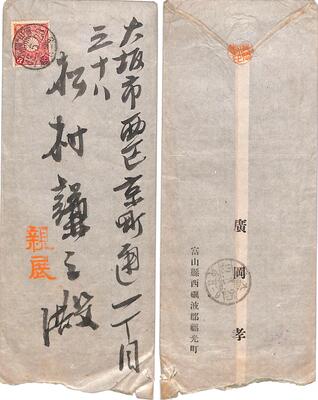 大阪市西区京町通一丁目
三十八
松村龔之殿
親展
廣岡孝
富山縣西礪波郡福光町